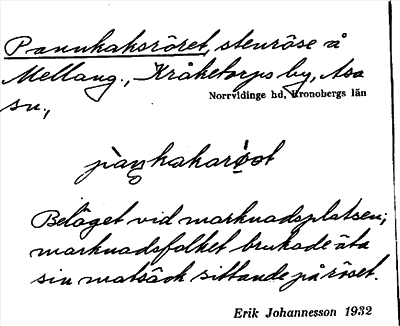 Pannkaksröret, stenröse å
Mellang., Kråketorps by, Asa
sn.,
Norrvidinge hd, Kronobergs län
Beläget vid marknadsplatsen;
marknadsfolket brukade äta
sin matsäck sittande på röset.
Erik Johannesson 1932